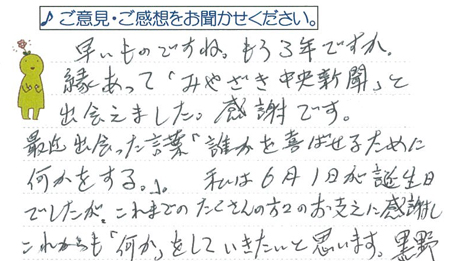 ♪ご意見・ご感想をお聞かせください。
早いものですね。もう3年ですか。
縁あって「みやざき中央新聞」と
出会えました。感謝です。
最近出会った言葉「誰かを喜ばせるために
何かをする。」。 私は6月1日が誕生日
でしたが、これまでのたくさんの方々のお支えに感謝し
これからも「何か」をしていきたいと思います。墨野